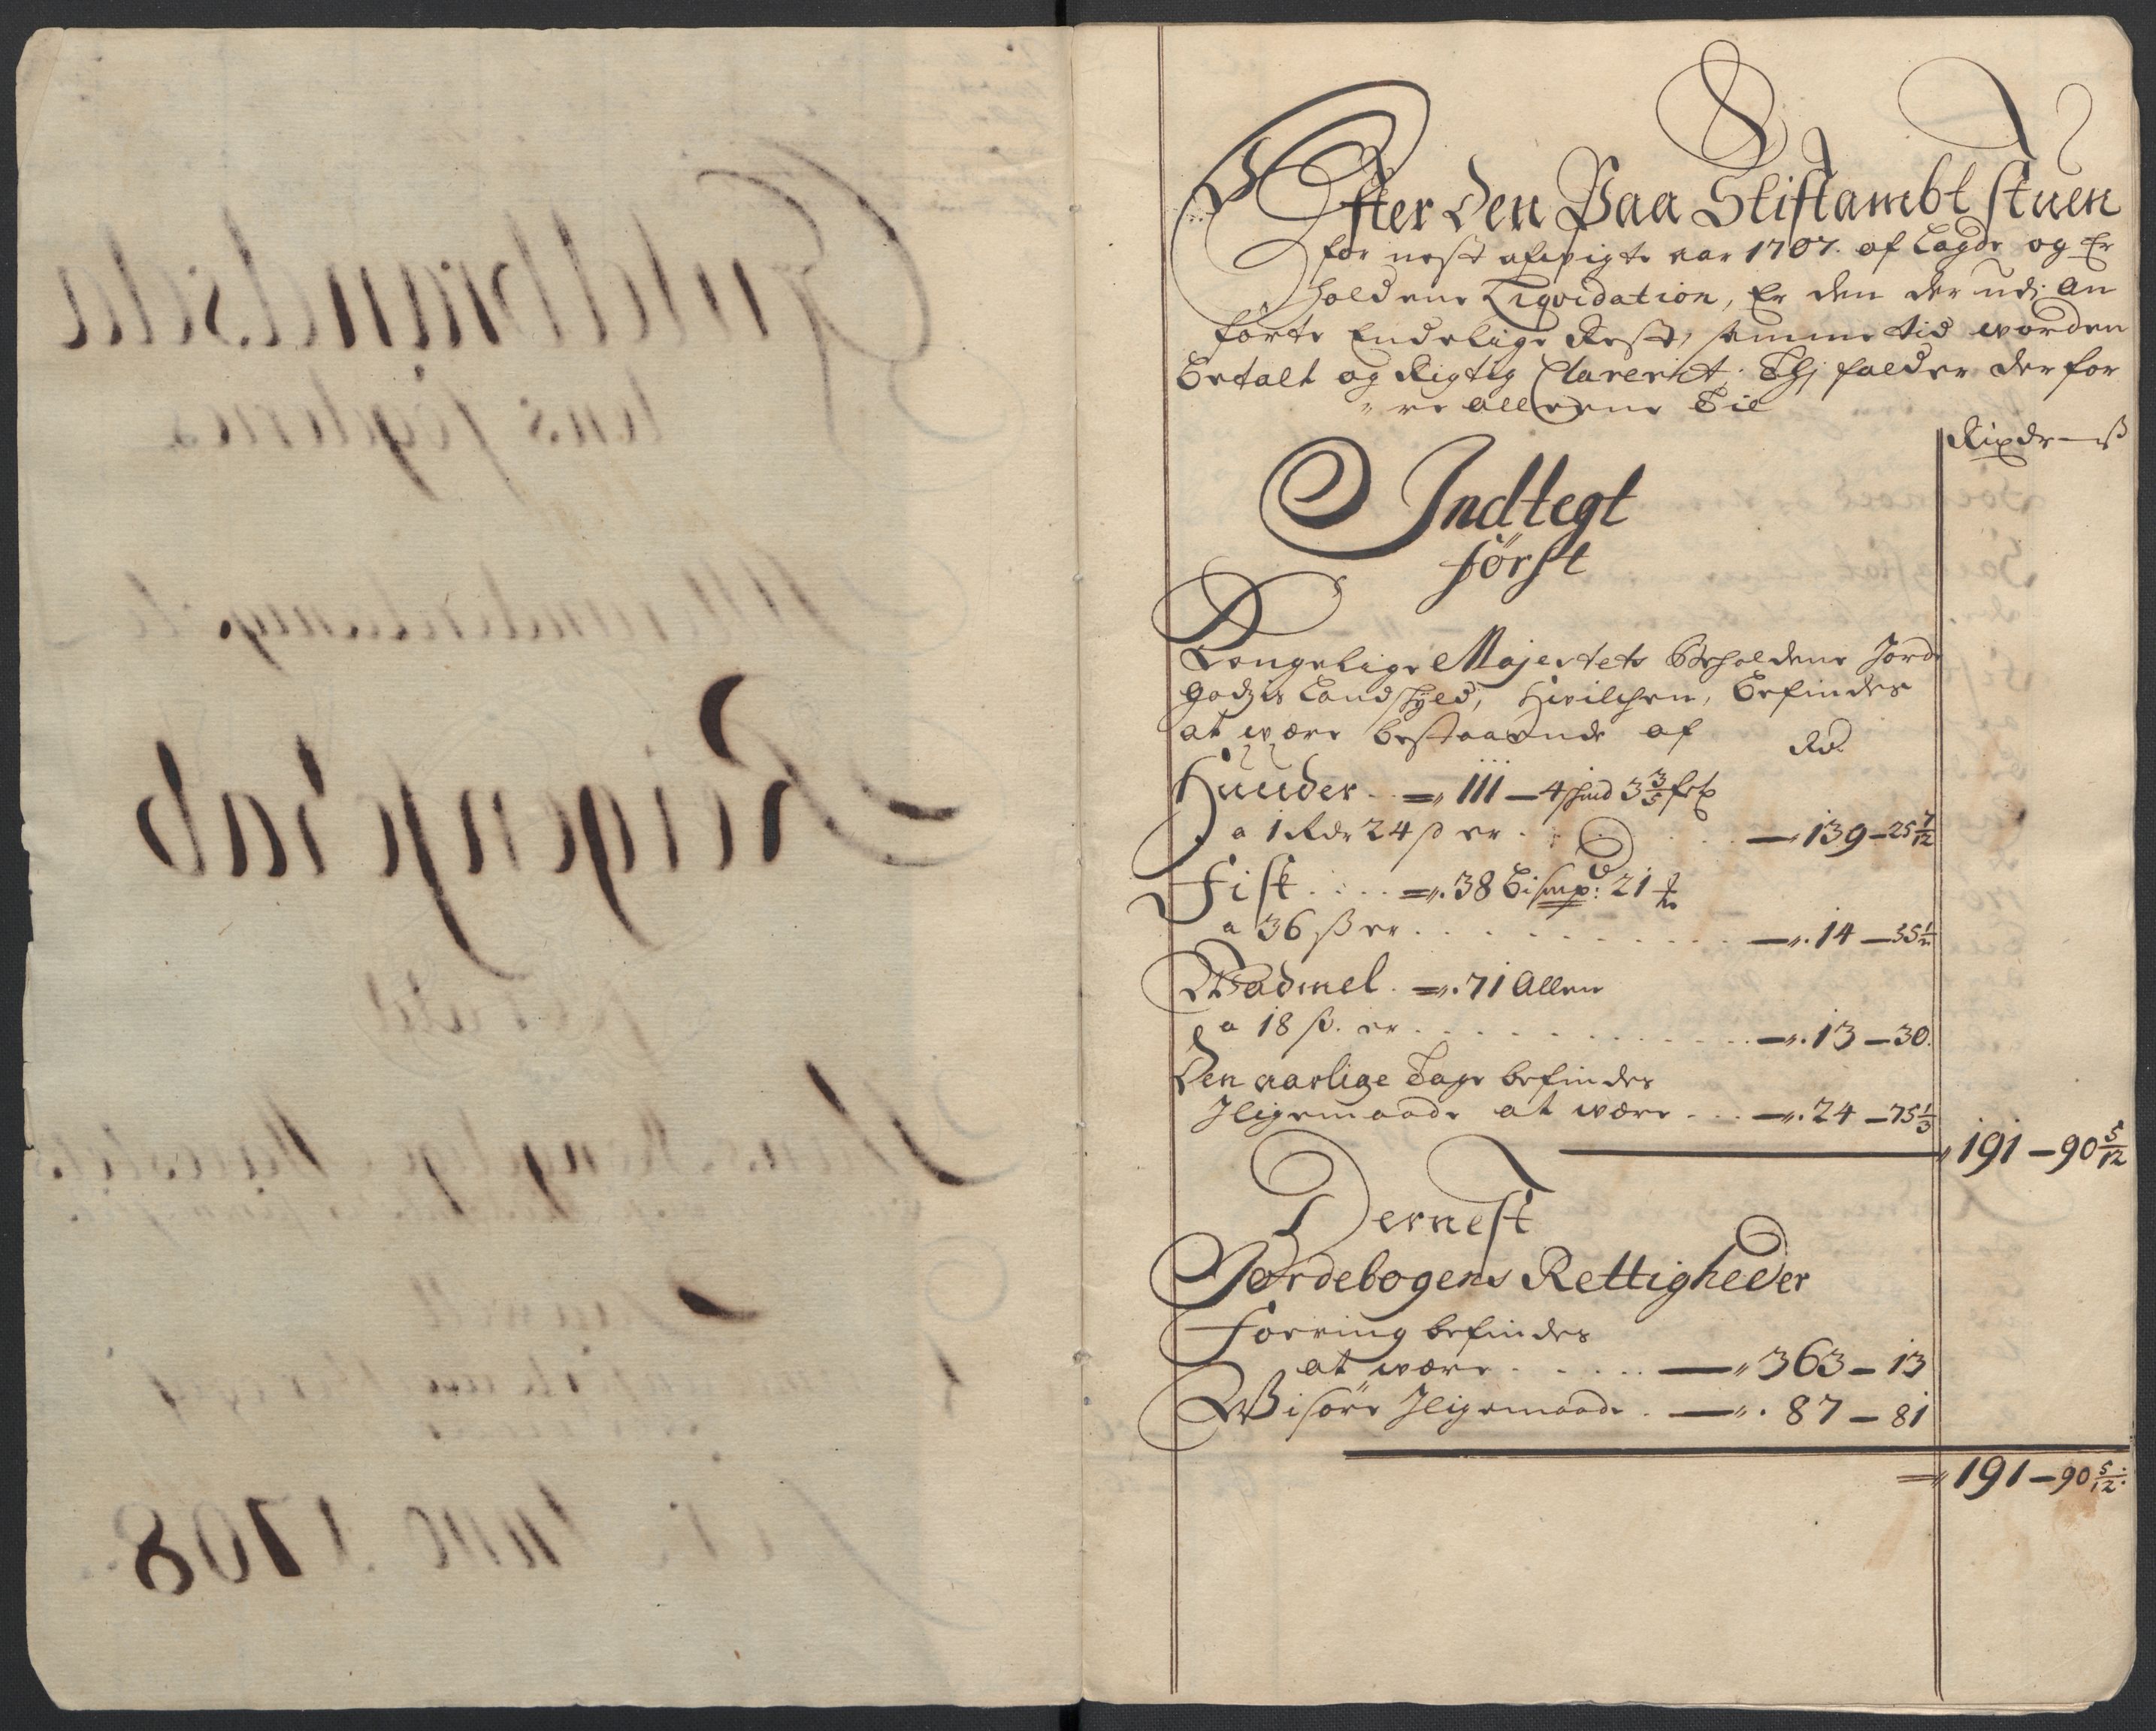 Efter den Paa Stiftambt stuen
for nest afvigte aar 1707. aflagde og Er
holdene Liqvidation, Er den der udj An
førte Endelige Rest, samme tid worden
Betalt og Rigtig Clarerit, Thj falder derfor
re alleene Til
Rixdr ß
Indtegt
først
Kongelige Majestets Beholdene Jorde
Godzis Landskyld, Hvilchen, Befindes
at være bestaaende af
Rd.
Huuder 111 – 4 skind 3 3/5
a 1 Rdr 24 ß er 139 – 25 7/12
Fisk 38 Bismp: 21
a 36 ß er 14 – 35 1/2
Wadmel 71 Allen
a 18 ß. er 13 – 30.
Den aarlige Tage befindes
Jligemaade at være 24 – 75 1/3
191 – 90 5/12
Dernest
Jordebogens Rettigheder
Foering befindes
at være 363 – 13
Wisøre Jligemaade 87 – 81
191 – 90 5/12
Gudbrandsda
lens fogderies
Reigenschab
Anno 1708